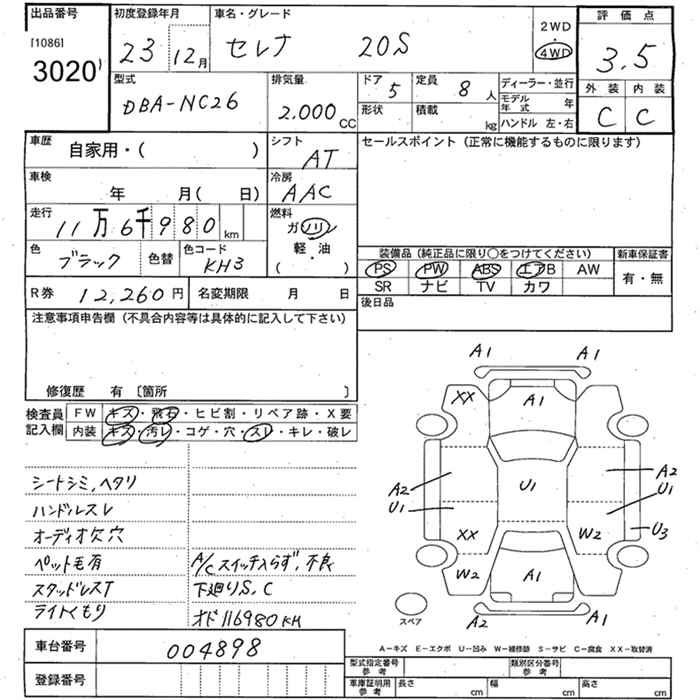 出品番号
[1086]
3020
初度登録年月
23 12月
車名・グレード
セレナ 20S
2WD
4WD
評価点
3.5
外装 内装
C C
型式
DBA-NC26
排気量
2.000 CC
ドア 5
形状
定員 8 人
積載 kg
ディーラー・並行
モデル年式 年
ハンドル 左・右
車歴 自家用・( )
シフト AT
セールスポイント (正常に機能するものに限ります)
車検 年 月( 日)
冷房 AAC
走行 11万6千980 km
燃料 ガソリン 軽・油 ( )
色 ブラック 色替 色コード KH3
装備品 (純正品に限り〇をつけてください)
新車保証書
PS PW ABS エアB AW
SR ナビ TV カワ
有・無
R券 12,260円 名変期限 月 日
後日品
注意事項申告欄 (不具合内容等は具体的に記入して下さい)
修復歴 有 〔箇所 〕
検査員記入欄
FW キズ・飛石・ヒビ割・リペア跡・X要
内装 キズ・汚レ・コゲ・穴・スレ・キレ・破レ
シートシミ,ヘタリ
ハンドルスレ
オーディオ欠穴
ペット毛有
A/Cスイッチ入らず,不良
スタッドレスT
下廻りS,C
ライトくもり
オド116980KM
車台番号 004898
登録番号
A1 A1
XX A1 XX
A2 U1 A2
U1 U1
XX W2 U3
W2 A1
A2 A1
スペア
A-キズ E-エクボ U-凹み W-補修跡 S-サビ C-腐食 XX-取替済
型式指定番号 参考
類別区分番号 参考
車庫証明用 参考
長さ cm 幅 cm 高さ cm